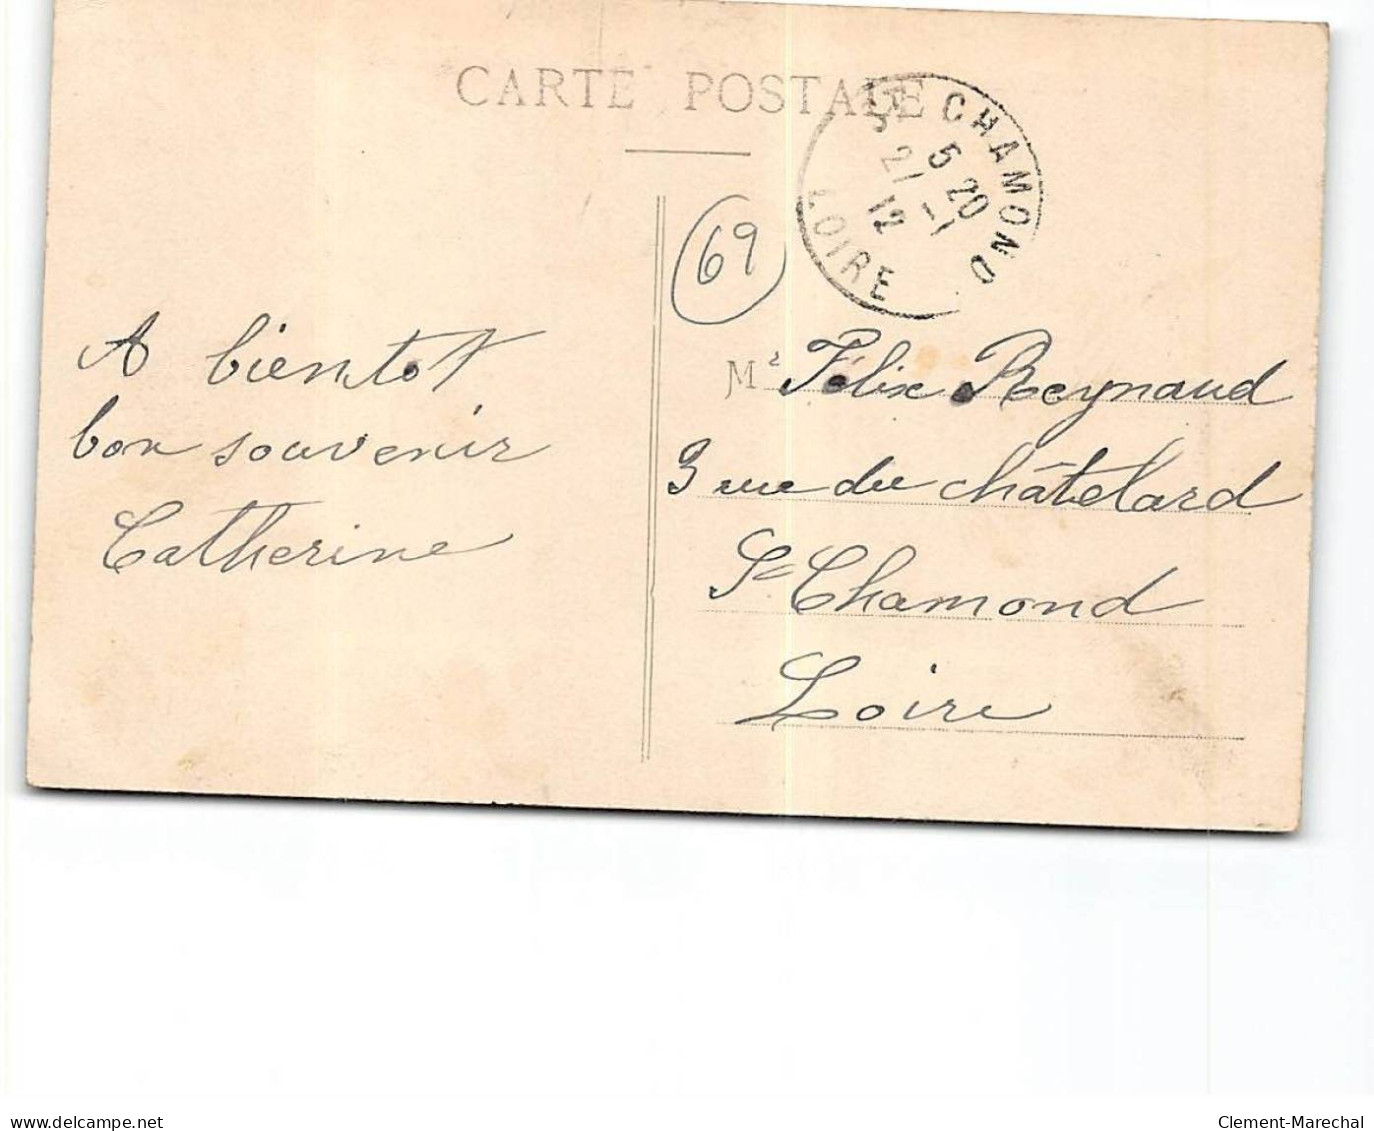 CARTE POSTALE
ST CHAMOND
5 20
21 -1
12
LOIRE
69
A bientot
bon souvenir
Catherine
Mr Félix Reynaud
3 rue du châtelard
St Chamond
Loire
www.delcampe.net
Clement-Marechal